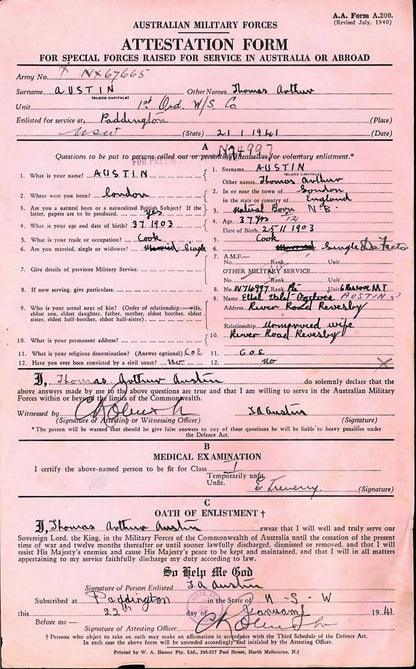 A.A. Form A.200.
(Revised July, 1940)
AUSTRALIAN MILITARY FORCES
ATTESTATION FORM
FOR SPECIAL FORCES RAISED FOR SERVICE IN AUSTRALIA OR ABROAD
Army No. NX67665
Surname AUSTIN Other Names Thomas Arthur
(BLOCK CAPITALS)
Unit 1st Ord. W/S. Co
Enlisted for service at Paddington (Place)
NSW (State) 21 1 1941 (Date)
A
N74997
Questions to be put to persons called out or presenting themselves for voluntary enlistment.*
1. What is your name? AUSTIN
1. Surname AUSTIN
(BLOCK CAPITALS)
Other names Thomas Arthur
2. Where were you born? London
2. In or near the town of London
in the state or country of England
3. Are you a natural born or a naturalized British Subject? If the latter, papers are to be produced. yes
3. Natural Born N.B.
4. What is your age and date of birth? 37 1903
4. Age 37 yrs
Date of Birth 25 11 1903
5. What is your trade or occupation? Cook
5. Cook
6. Are you married, single or widower? Married Single
6. Married Single De Facto
7. Give details of previous Military Service.
7. A.M.F.
OTHER MILITARY SERVICE
8. If now serving, give particulars.
8. No. N74997 Rank Pte Unit 6 Reserve M.T
9. Who is your actual next of kin? (Order of relationship—wife, eldest son, eldest daughter, father, mother, eldest brother, eldest sister, eldest half-brother, eldest half-sister).
9. Name Ethel AUSTIN
Address River Road Revesby
Relationship Unmarried wife
10. What is your permanent address?
River Road Revesby
11. What is your religious denomination? (Answer optional) C of E
11. C.O.E
12. Have you ever been convicted by a civil court? No
12. No
I, Thomas Arthur Austin do solemnly declare that the
above answers made by me to the above questions are true and that I am willing to serve in the Australian Military
Forces within or beyond the limits of the Commonwealth.
Witnessed by
T A Austin
(Signature of Attesting or Witnessing Officer) (Signature)
* The person will be warned that should he give false answers to any of these questions he will be liable to heavy penalties under
the Defence Act.
B
MEDICAL EXAMINATION
I certify the above-named person to be fit for Class I
Temporarily unfit.
Unfit.
(Signature)
C
OATH OF ENLISTMENT †
I, Thomas Arthur Austin swear that I will well and truly serve our
Sovereign Lord, the King, in the Military Forces of the Commonwealth of Australia until the cessation of the present
time of war and twelve months thereafter or until sooner lawfully discharged, dismissed or removed, and that I will
resist His Majesty's enemies and cause His Majesty's peace to be kept and maintained, and that I will in all matters
appertaining to my service faithfully discharge my duty according to law.
So Help Me God
Signature of Person Enlisted T A Austin
Subscribed at Paddington in the State of N-S-W
this 22nd day of January 1941
Before me—
Signature of Attesting Officer
† Persons who object to take an oath may make an affirmation in accordance with the Third Schedule of the Defence Act.
In such case the above form will be amended accordingly and initialed by the Attesting Officer.